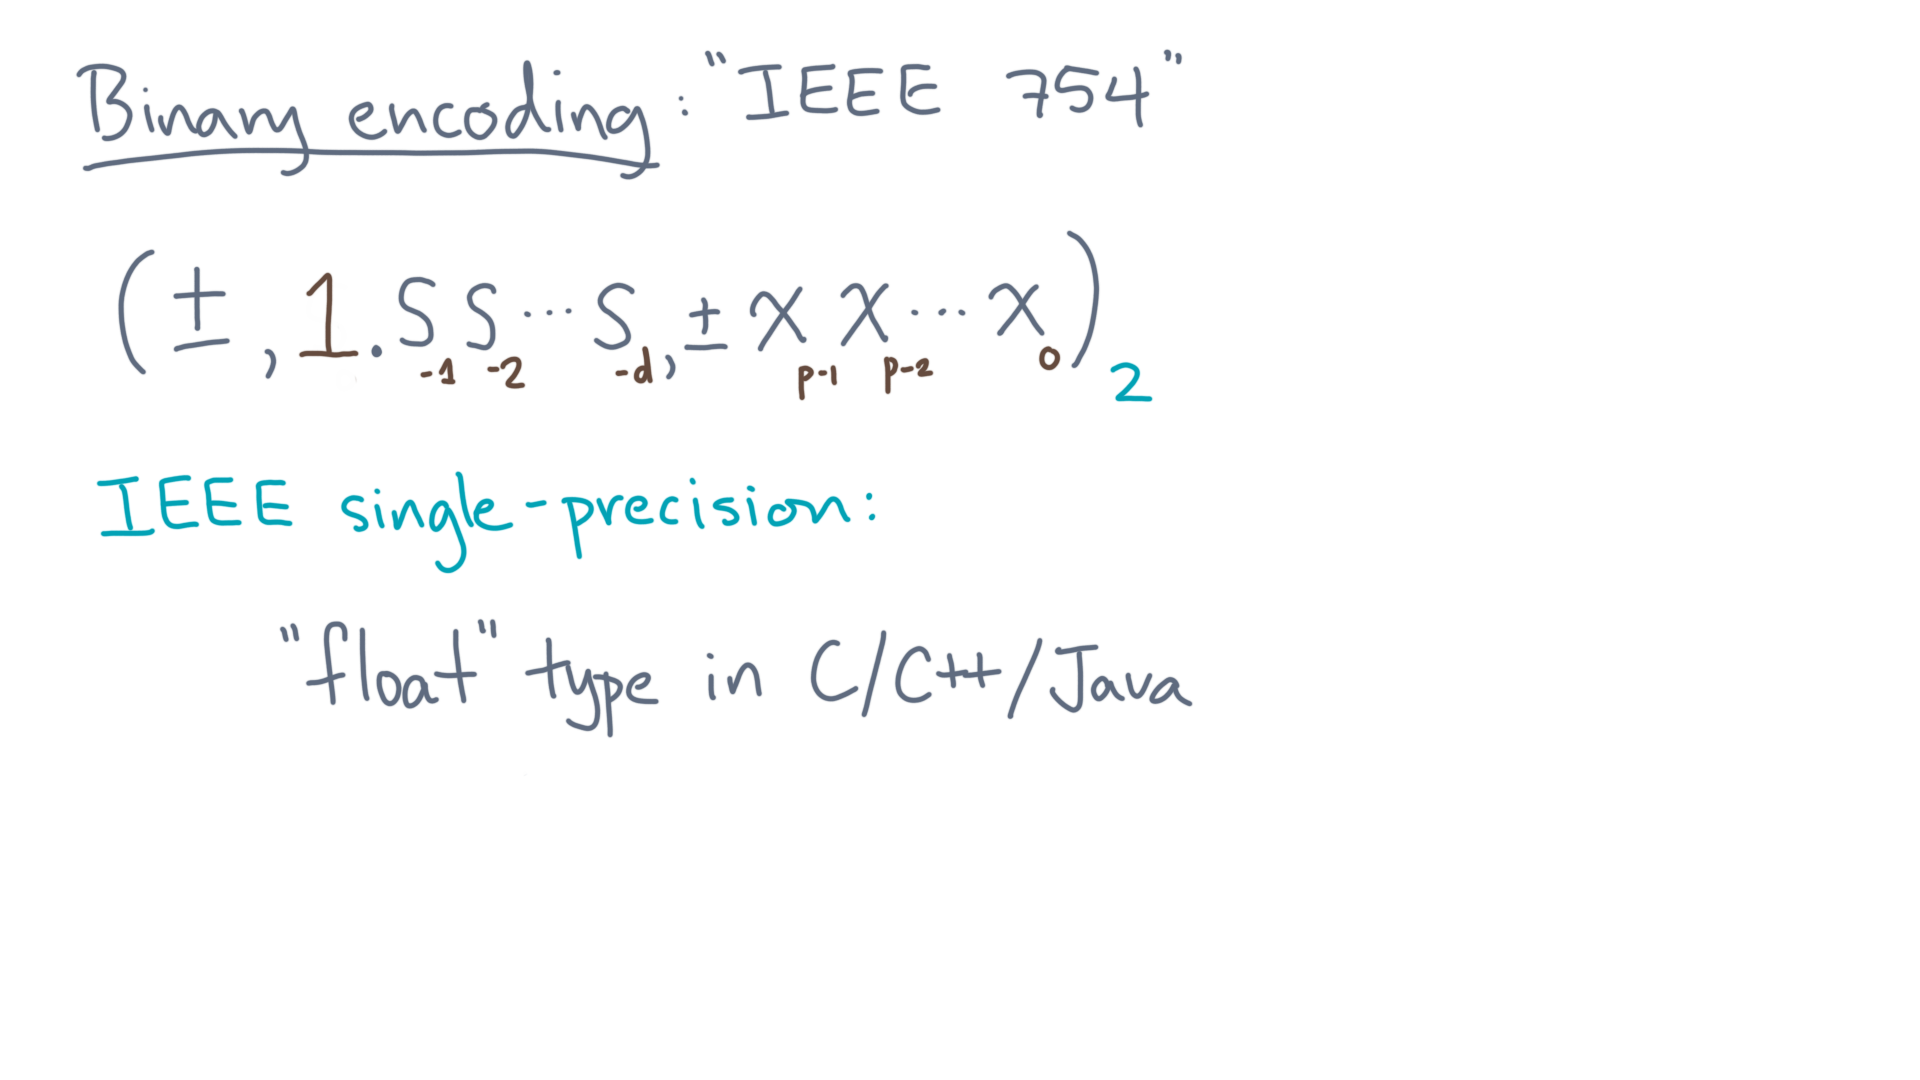 Binary encoding: "IEEE 754"
(±, 1.S₋₁S₋₂⋯S₋d, ±xₚ₋₁xₚ₋₂⋯x₀)₂
IEEE single-precision:
"float" type in C/C++/Java